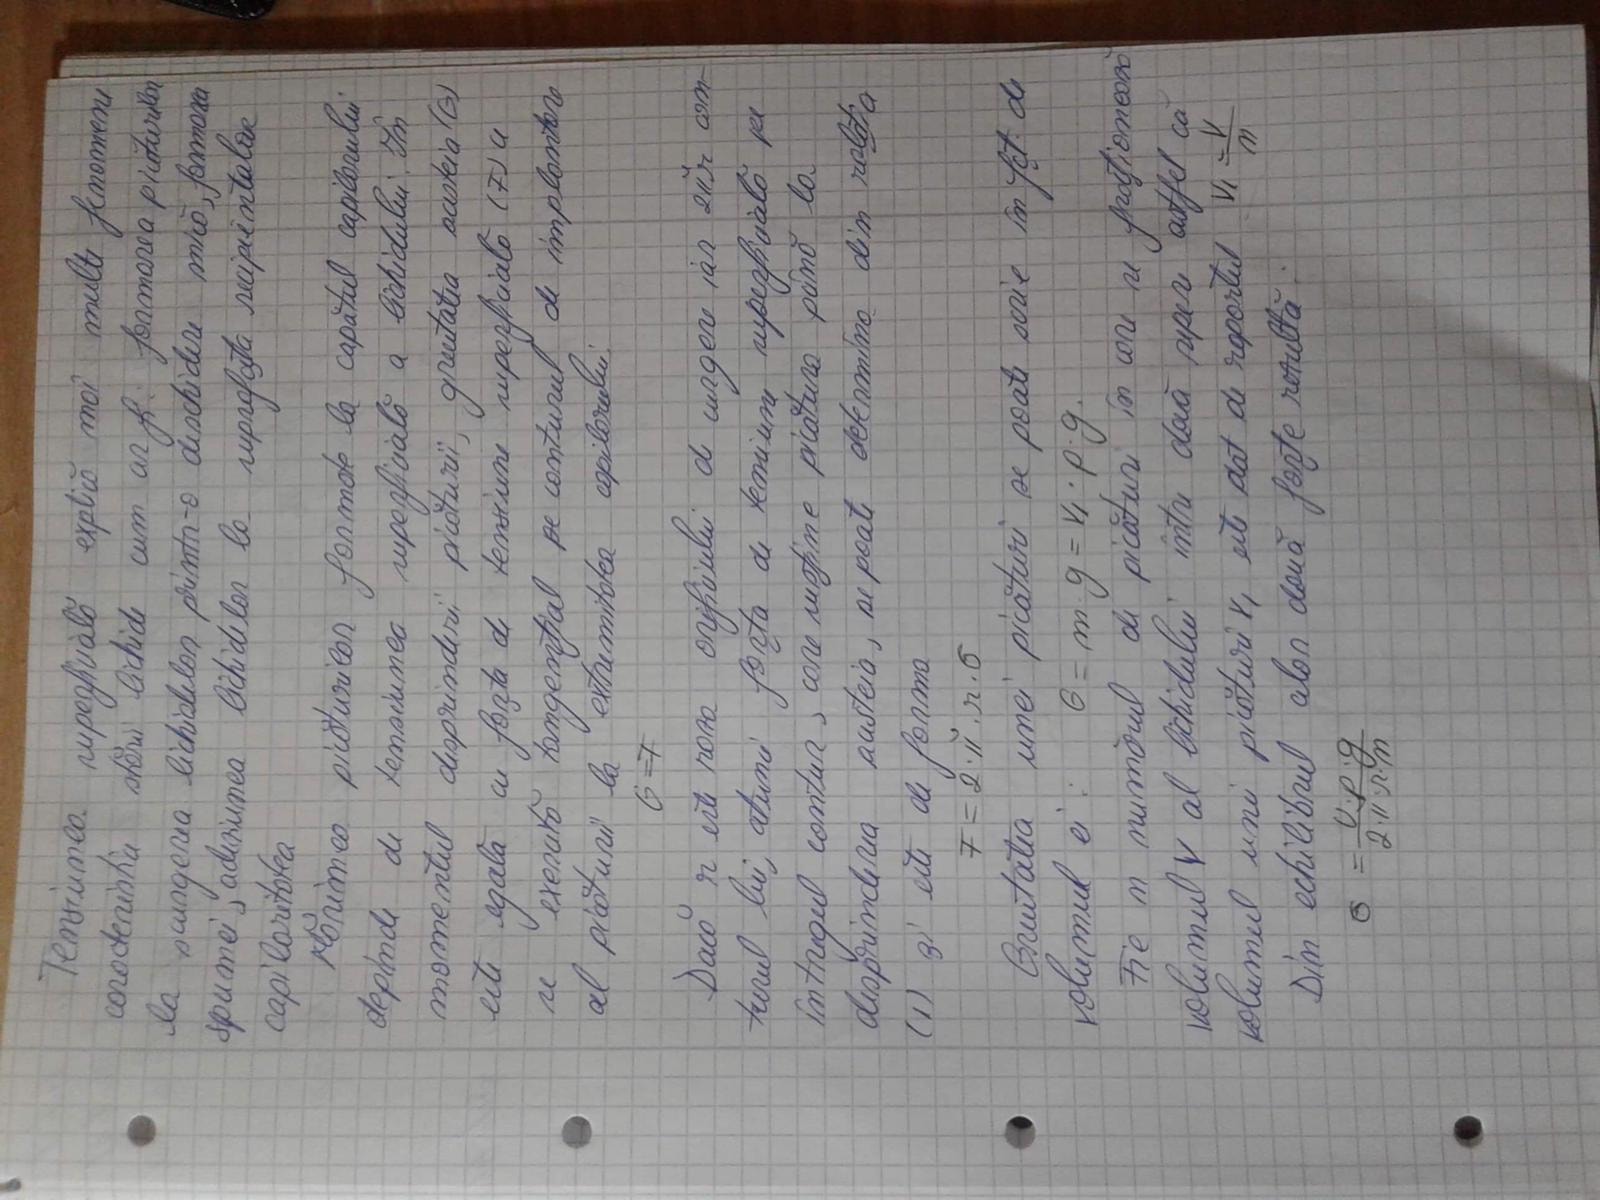 Tensiunea superficială explică mai multe fenomene
caracteristice stării lichide cum ar fi: formarea picăturilor
la curgerea lichidelor printr-o deschidere mică, formarea
spumei, aderarea lichidelor la suprafața recipientelor
capilaritatea
Mărimea picăturilor formate la capătul capilarului
depinde de tensiunea superficială a lichidului. În
momentul desprinderii picăturii, greutatea acesteia (G)
este egală cu forța de tensiune superficială (F) a
se exercită tangențial pe conturul de implantare
al picăturii la extremitatea capilarului.
G=F
Dacă r este raza orificiului de curgere iar 2πr con-
turul lui, atunci forța de tensiune superficială pe
întregul contur, care susține picătura până la
desprinderea acesteia, se poate determina din relația
(1) și este de forma
F = 2·π·r·σ
Greutatea unei picături se poate scrie în fct. de
volumul ei: G = m·g = V₁·ρ·g.
Fie n numărul de picături în care se fracționează
volumul V al lichidului între două repere astfel că
volumul unei picături V₁ este dat de raportul V₁ = V/n
Din echilibrul celor două forțe rezultă:
σ = V·ρ·g / 2·π·r·n